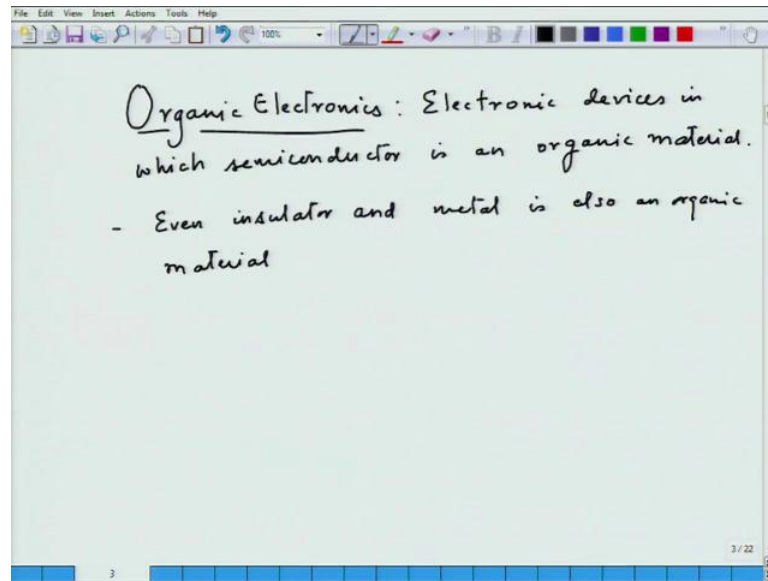 File Edit View Insert Actions Tools Help
100%
B I
Organic Electronics : Electronic devices in
which semiconductor is an organic material.
- Even insulator and metal is also an organic
material
3 / 22
3